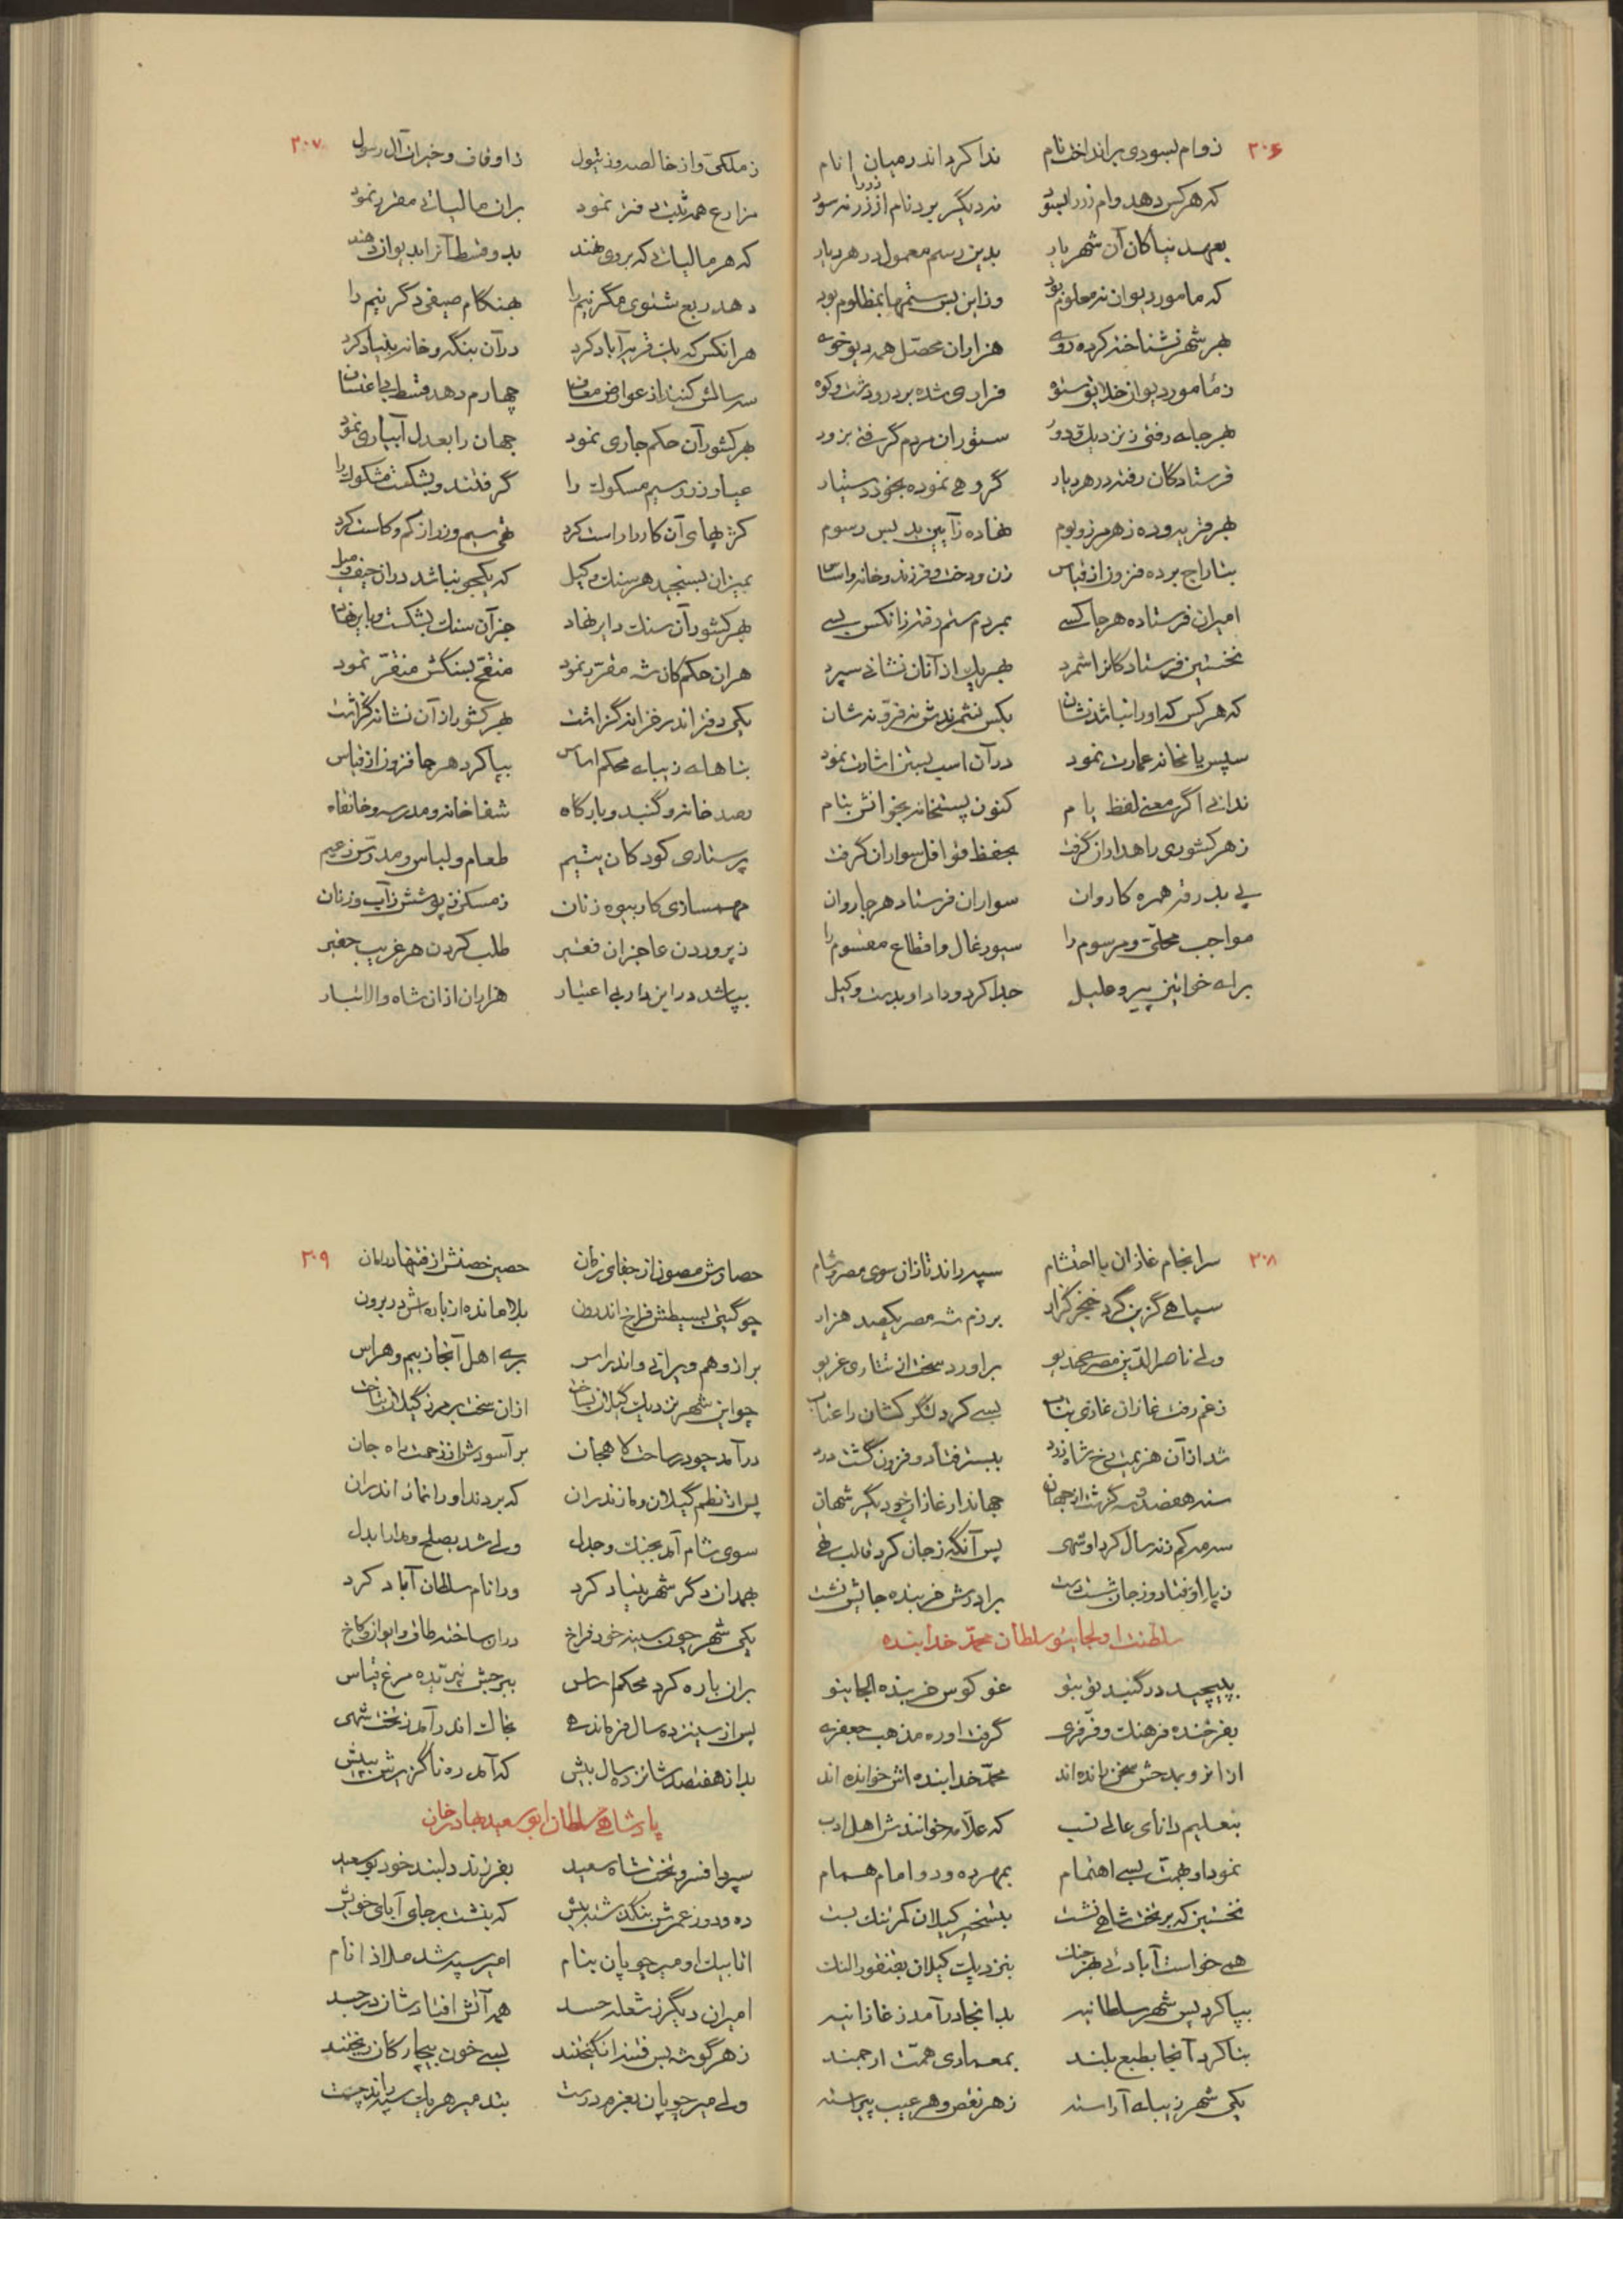 ۳۰۶
ز وام بسودی برانداخت نام ندا کرد اندر میان انام
که هر کس دهد وام زر را بسود نه دیگر برد نام از زر نه سود
بعهد نیاکان آن شهریار بدین رسم معمول در هر دیار
که مامور دیوان نه معلوم بود وزاین بس ستمها بمظلوم بود
بهر شهر نشناخته کرده روی هزاران محصّل همه دیو خوی
ز مامور دیوان خلایق ستوه فراری شده بر در و دشت و کوه
بهر جا که رفتی ز نزدیک و دور ستوران مردم گرفتی بزور
فرستادگان رفته در هر دیار گروهی نموده بخود دستیار
بهر قریه و ده ز هر مرز و بوم نهاده ز آیین بد بس رسوم
بتاراج برده فزون از قیاس زن و دخت و فرزند و خانه و اساس
امیران فرستاده هر جا کسی بمردم ستم رفته زانکس بسی
نخستین فرستادگانرا شمرد بهر یک از آنان نشانی سپرد
که هر کس که او را نباشد نشان بکس نشمرندش نه فرّ و نه شان
سپس یامخانه عمارت نمود در آن اسب بستن اشارت نمود
ندانی اگر معنی لفظ یام کنون پستخانه بخوانش بنام
ز هر کشوری راهداران گرفت بحفظ قوافل سواران گرفت
پی بدرقه همره کاروان سواران فرستاد هر جا روان
مواجب محلّی و مرسوم را سیورغال و اقطاع مقسوم را
برای خواتین پیر و علیل جدا کرد و داد او بدست وکیل
۳۰۷
ز ملکی و از خالصه وز تیول ز اوقاف و خیرات آل رسول
مزارع همه ثبت دفتر نمود بران مالیاتی مقرر نمود
که هر مالیاتی که بروی نهند بدو قسط آنرا بدیوان دهند
دهد ربع شتوی مگر نیم را بهنگام صیفی دگر نیم را
هر آنکس که یک قریه آباد کرد در آن بنگه و خانه بنیاد کرد
سه سالش کنند از عوارض معاف چهارم دهد قسط بی اعتساف
بهر کشور آن حکم جاری نمود جهان را بعدل آبیاری نمود
عیار زر و سیم مسکوک را گرفتند و بشکست مشکوک را
کژیهای آن کار را راست کرد تهی سیم و زر از کم و کاست کرد
بمیزان بسنجید هر سنگ و کیل که یکجو نباشد در آن حیف و میل
بهر کشور آن سنگ دایر نهاد جز آن سنگ بشکست و بایر نهاد
هران حکم کان شه مقرر نمود منقح بسنگش منقّر نمود
یکی دفتر اندر خزانه گذاشت بهر کشور از آن نشانه گذاشت
بناهای زیبای محکم اساس بپا کرد هر جا فزون از قیاس
رصد خانه و گنبد و بارگاه شفا خانه و مدرسه و خانقاه
پرستاری کودکان یتیم طعام و لباس و مدرّس زعیم
جهیزسازی کار بیوه زنان ز مسکن ز پوشش ز آب و ز نان
ز پروردن عاجزان فقیر طلب کردن هر غریب حقیر
بپاشد در این دار بی اعتبار هزاران از ان شاه والا تبار
۳۰۸
سرانجام غازان با احتشام سپه راند تازان سوی مصر و شام
سپاهی گزین کرد خنجر گزار برزم شه مصر یکصد هزار
ولی ناصر الدّین مصری خدیو برآورد سخت از تتاری غریو
ز غم رفت غازان غازی بتاب بسی کرد لشگر کشان را عتاب
شد از آن هزیمت رخ شاه زرد ببستر فتاد و فزون گشت درد
سنه هفصد و سه گذشت از جهان جهاندار غازان خور دیگر شهان
سه مه کم ز نه سال کرد او شهی پس آنگه ز جان کرد قالب تهی
ز پا او فتاد و ز جان شست دست برادرش خربنده جایش نشست
سلطنت اولجایتو سلطان محمّد خدابنده
بپیچید در گنبد تو بتو غو کوس خربنده الجایتو
بفرخنده فرهنگ و فرّ فری گرفت او ره مذهب جعفری
از انرو بمدحش سخن رانده اند محمّد خدابنده اش خوانده اند
بتعلیم دانای عالی نسب که علّامه خوانندش اهل ادب
نمود او بهمت بسی اهتمام بمهر ده و دو امام همام
نخستین که بر تخت شاهی نشست بتسخیر گیلان کمر تنگ بست
همی خواست آبادئی بهر جنگ بنزدیک گیلان بقنقور النگ
بپا کرد پس شهر سلطانیه بدانجا در آمد ز غازانیه
بنا کرد آنجا بطبع بلند بمعماری همّت ارجمند
یکی شهر زیبای آراسته ز هر نقص و هر عیب پیراسته
۳۰۹
حصارش مصون از جفای زمان حصین حصنش از فتنها در امان
چو گیتی بسیطش فراخ اندرون بلا مانده از باره اش در برون
براز وهم ویرانی و اندراس بری اهل آنجا ز بیم و هراس
چو این شهر نزدیک گیلان بساخت ازان سخت بر مرز گیلان بتاخت
درآمد چو در ساحت لاهجان برآسودش از زحمت راه جان
پس از نظم گیلان و مازندران که بردند او را نماز اندران
سوی شام آمد بجنگ و جدل ولی شد بصلح و مدارا بدل
بهمدان دگر شهر بنیاد کرد ورا نام سلطان آباد کرد
یکی شهر چون سینه خود فراخ دران ساخته طاق و ایوان و کاخ
بران باره کرد محکم اساس ببرجش نپریده مرغ قیاس
پس از سیزده سال فرماندهی بخاک اندر آمد ز تخت شهی
بد از هفتصد شانزده سال بیش که آمد ره ناگزیرش بپیش
پادشاهی سلطان ابو سعید بهادر خان
سپرد افسر و تخت شاه سعید بفرزند دلبند خود بوسعید
ده و دو ز عمرش بنگذشته بیش که بنشست بر جای آبای خویش
اتابیک او میر چوپان بنام امیر سپه شد ملاذ انام
امیران دیگر ز شعله حسد همه آتش افتادشان در جسد
ز هر گوشه بس فتنه انگیختند بسی خون بیچارگان ریختند
ولی میر چوپان بعزم درست بتدمیر هر یک سپه راند چست